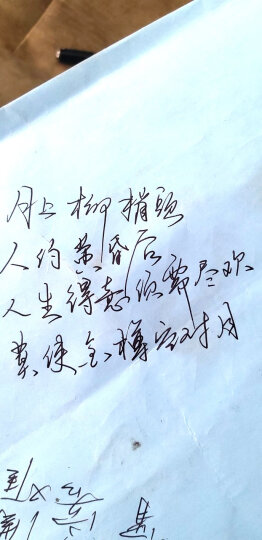 月上柳梢头
人约黄昏后
人生得意须需尽欢
莫使金樽空对月